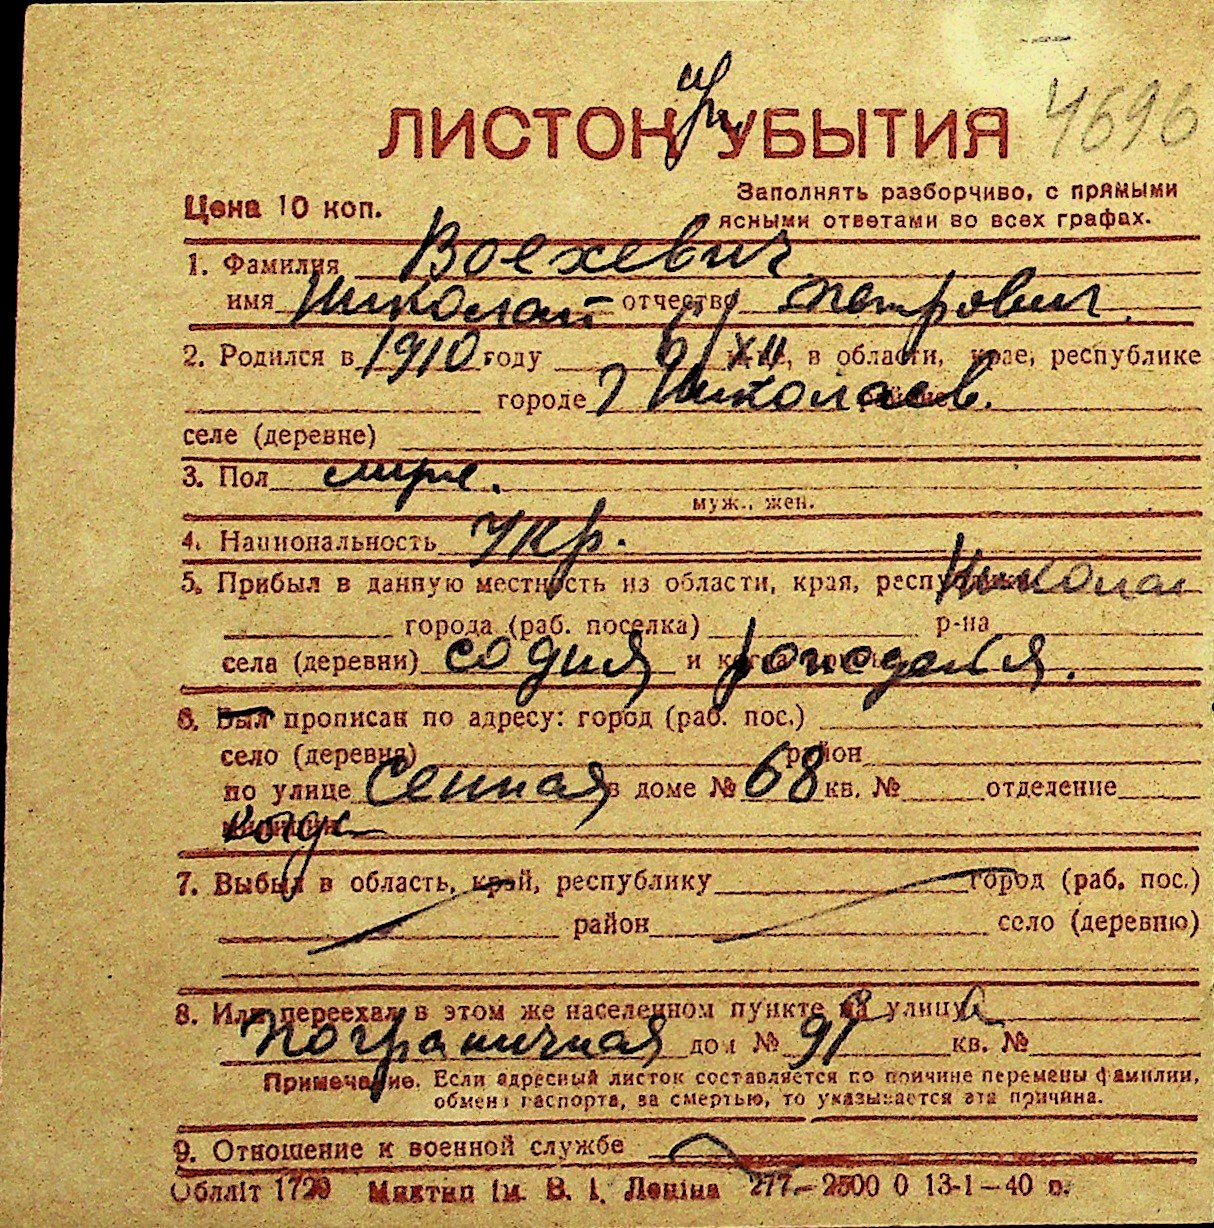 4696
при
ЛИСТОК УБЫТИЯ
Цена 10 коп.
Заполнять разборчиво, с прямыми
ясными ответами во всех графах.
1. Фамилия Воехевич
имя Николай отчество Петрович.
2. Родился в 1910 году 6/XII, в области, крае, республике
городе г Николаев.
селе (деревне)
3. Пол муж.
муж., жен.
4. Национальность Укр.
5. Прибыл в данную местность из области, края, республики Николаев
города (раб. поселка) р-на
села (деревни) со дня и когда рождения.
6. Был прописан по адресу: город (раб. пос.)
село (деревня) район
по улице Сенная в доме № 68 кв. № отделение
милиции
7. Выбыл в область, край, республику город (раб. пос.)
район село (деревню)
8. Или переехал в этом же населенном пункте на улицу
Пограничная дом № 91 кв. №
Примечание. Если адресный листок составляется по причине перемены фамилии,
обмена паспорта, за смертью, то указывается эта причина.
9. Отношение к военной службе
Облліт 1729 Миктип ім. В. І. Леніна 277—2500 0 13-1—40 р.